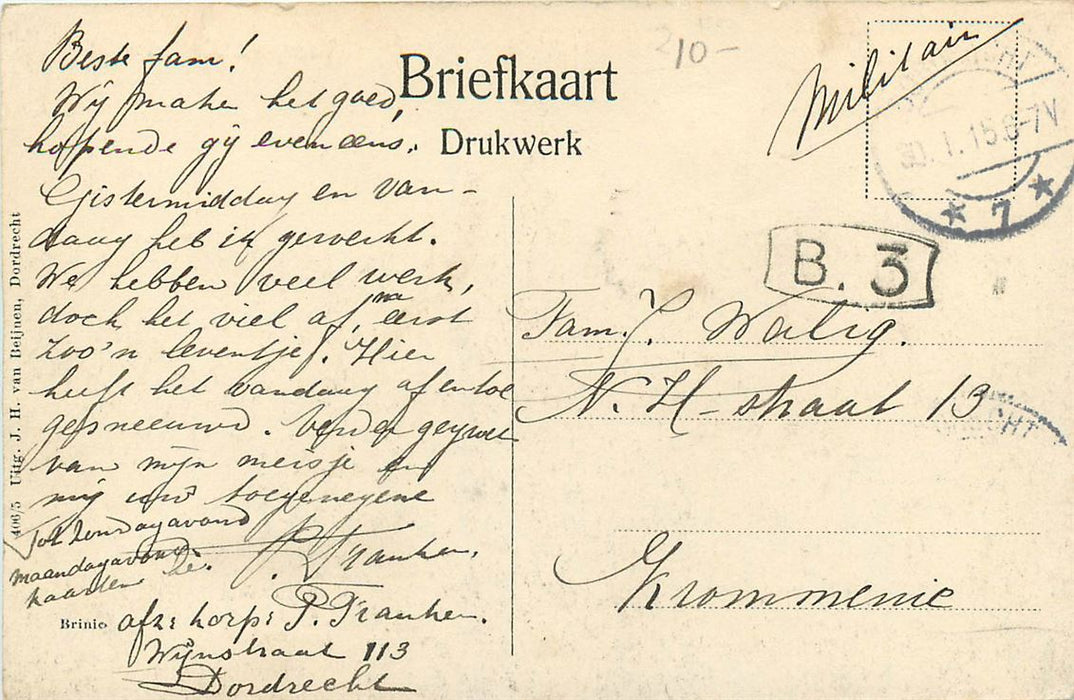 Beste fam!
Wij maken het goed,
hopende gij eveneens.
Gistermiddag en van-
daag heb ik gewerkt.
We hebben veel werk,
doch het viel af, na eerst
zoo'n leventje. Hier
heeft het vandaag af en toe
gesneeuwd. Verder gegroet
van mijn meisje en
mij uw toegenegene
P. Franken.
Tot Zondagavond
maandagavond
kaarten
Brinio
afz: korp: P. Franken.
Wijnstraat 113
Dordrecht
406/5 Uitg. J. H. van Beijnen, Dordrecht
Briefkaart
Drukwerk
210-
Militair
30.1.15.6-7V
7
B. 3
Fam. J. Walig.
N. H-straat 13
Krommenie